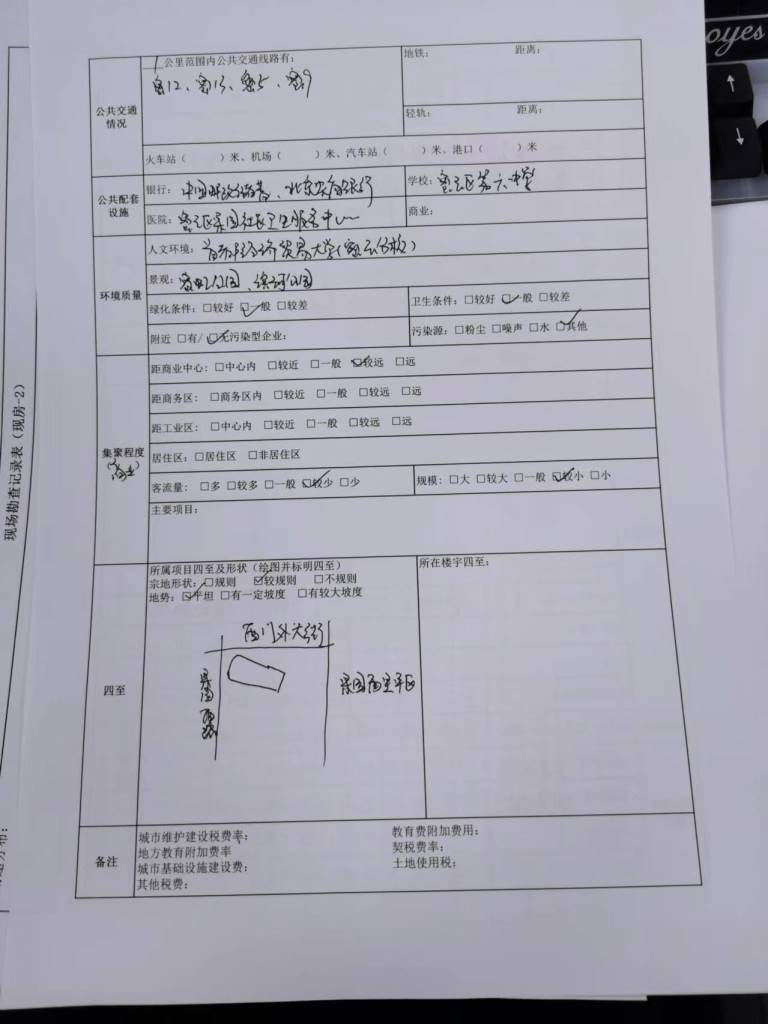 oyes
现场勘查记录表（现房-2）
公共交通情况
1公里范围内公共交通线路有：
密12、密13、密5、密9
地铁： 距离：
轻轨： 距离：
火车站（ ）米、机场（ ）米、汽车站（ ）米、港口（ ）米
公共配套设施
银行：中国邮政储蓄、北京农商银行
学校：密云区第六中学
医院：密云区果园社区卫生服务中心
商业：
环境质量
人文环境：首都经济贸易大学(密云分校)
景观：密虹公园、滨河公园
绿化条件：□较好 ☑一般 □较差
卫生条件：□较好 ☑一般 □较差
附近 □有/☑无污染型企业：
污染源：□粉尘 □噪声 □水 ☑其他
集聚程度
(商业)
距商业中心：□中心内 □较近 □一般 ☑较远 □远
距商务区：□商务区内 □较近 □一般 □较远 □远
距工业区：□中心内 □较近 □一般 □较远 □远
居住区：□居住区 □非居住区
客流量：□多 □较多 □一般 ☑较少 □少
规模：□大 □较大 □一般 ☑较小 □小
主要项目：
四至
所属项目四至及形状（绘图并标明四至）
宗地形状：□规则 ☑较规则 □不规则
地势：☑平坦 □有一定坡度 □有较大坡度
所在楼宇四至：
西门外大街
果园西路
果园西里平区
备注
城市维护建设税费率：
教育费附加费用：
地方教育附加费率
契税费率：
城市基础设施建设费：
土地使用税：
其他税费：